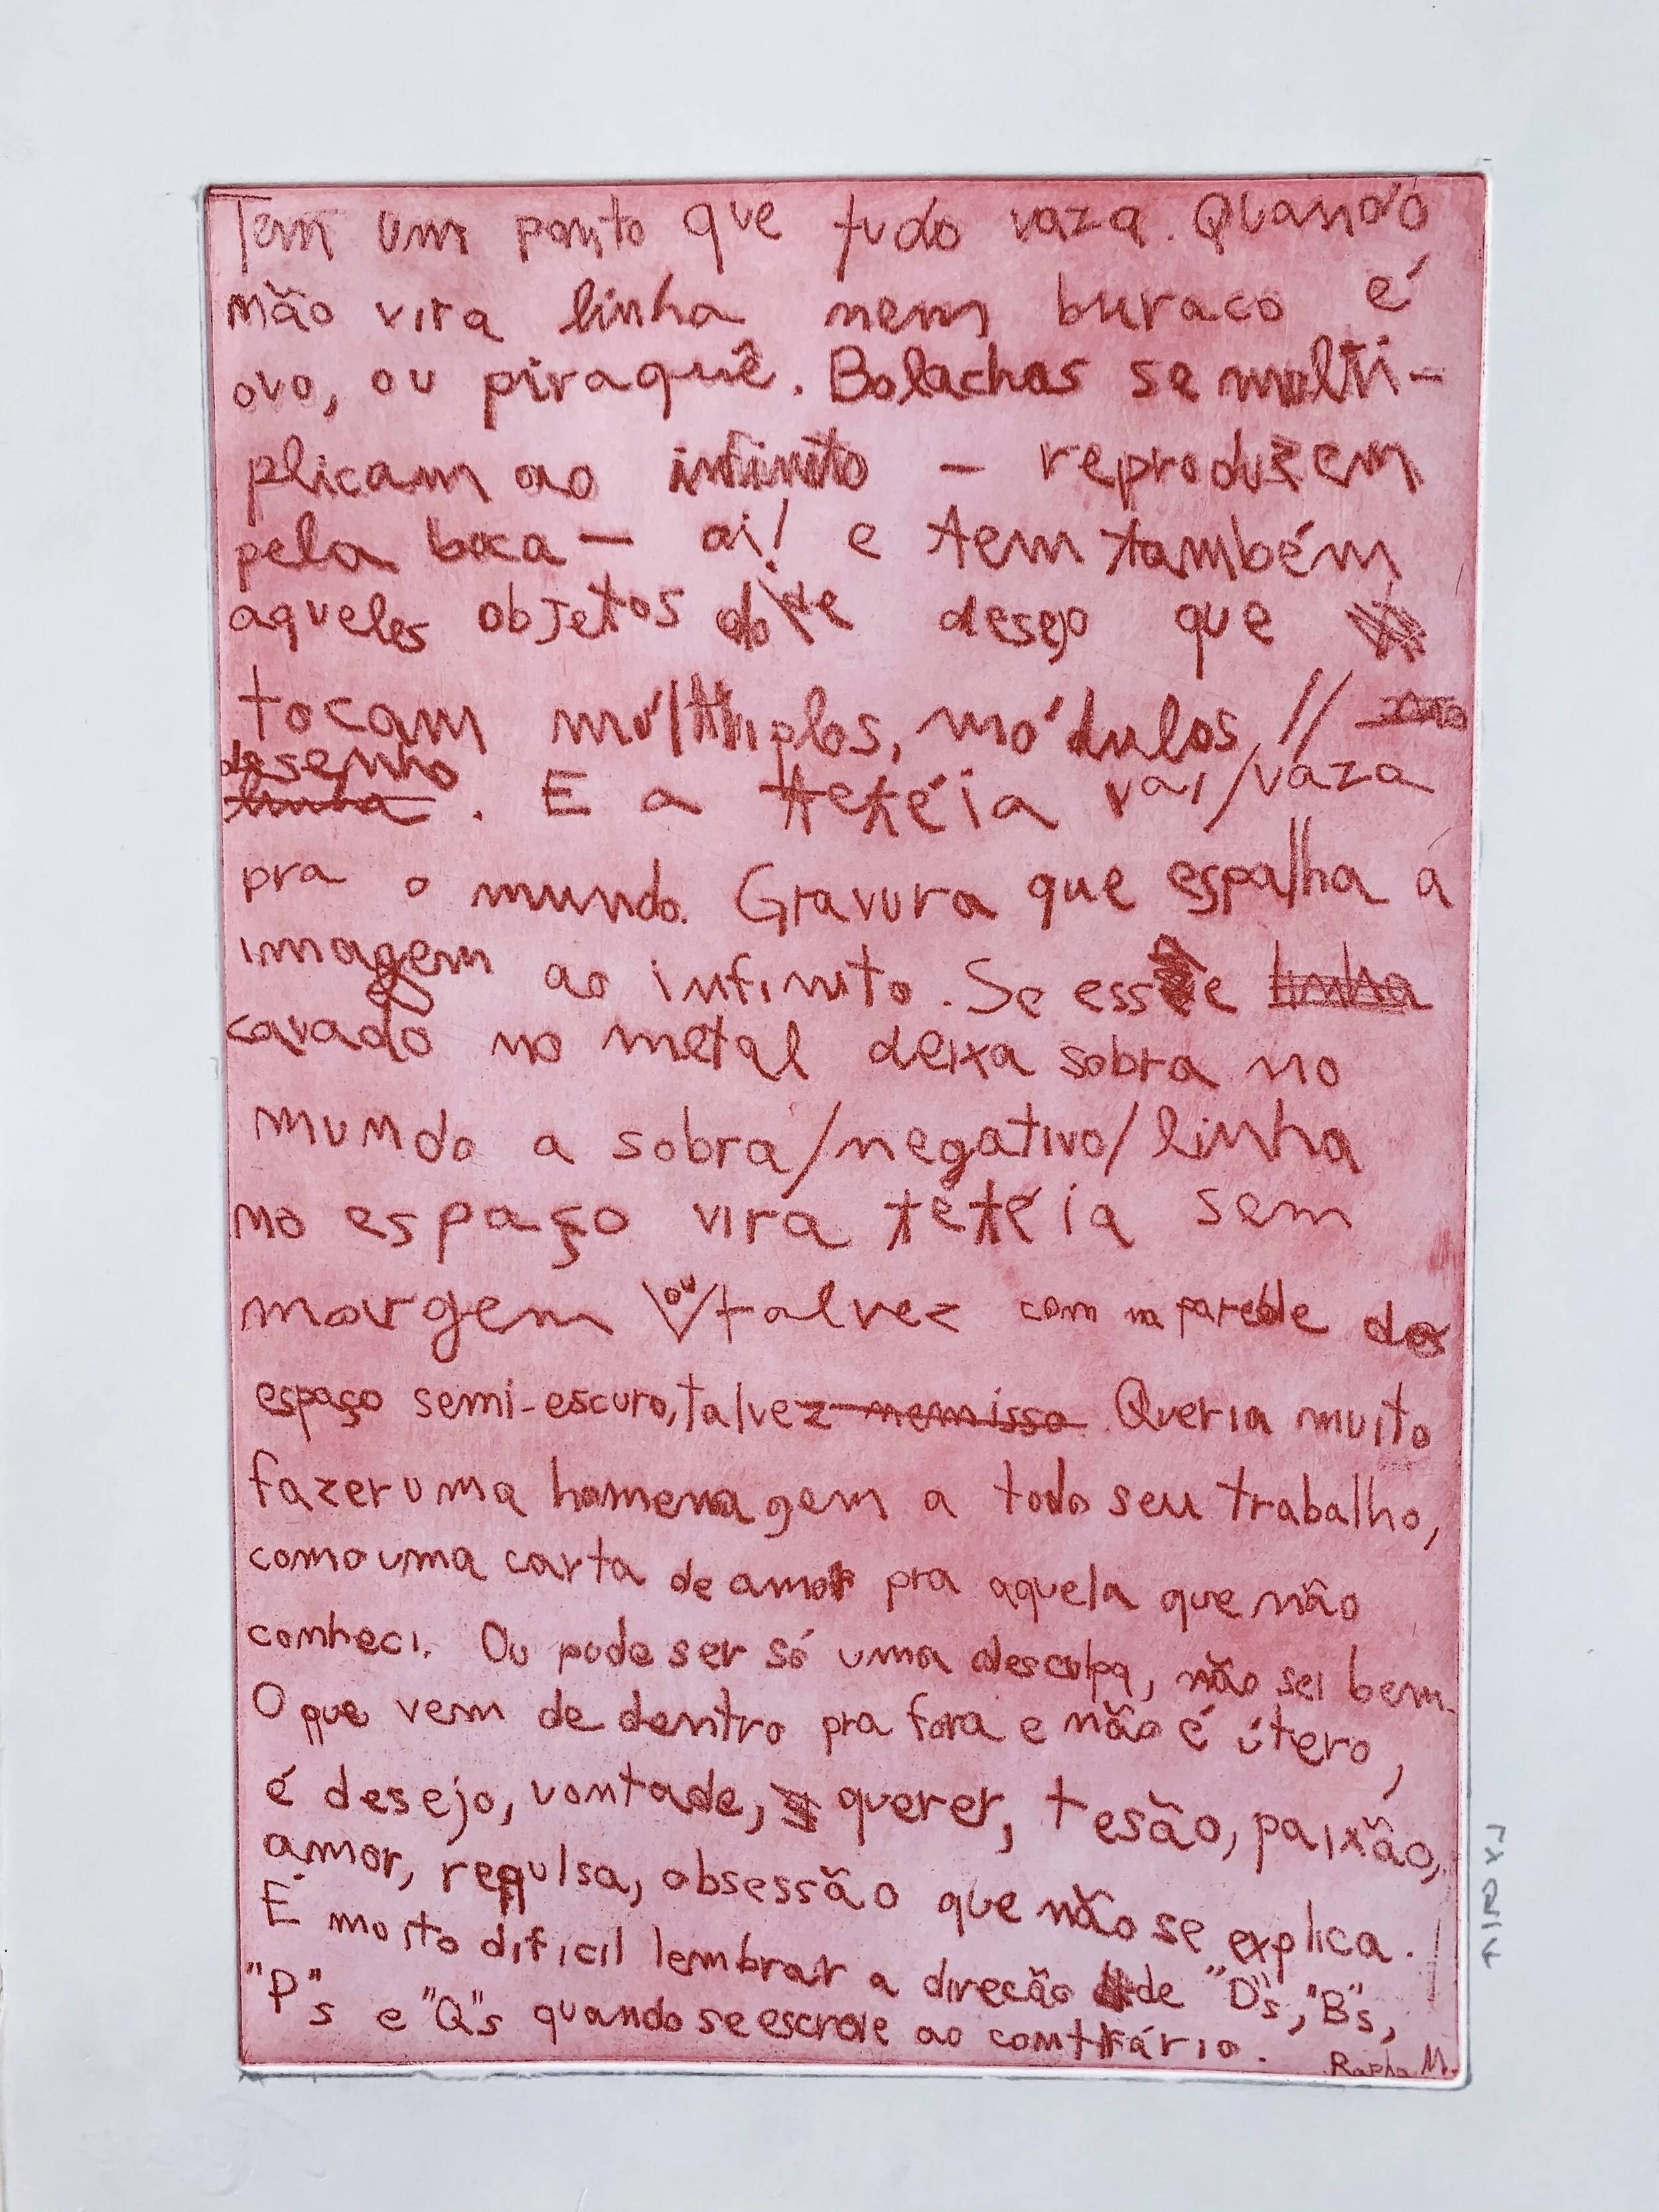 Tem um ponto que tudo vaza. Quando
mão vira linha nem buraco é
ovo, ou piraquê. Bolachas se multi-
plicam ao infinito – reproduzem
pela boca – ai! e tem também
aqueles objetos do de desejo que
tocam múltiplos, módulos, //
desenho
linha . E a tetéia vai/vaza
pra o mundo. Gravura que espalha a
imagem ao infinito. Se esse linha
cavado no metal deixa sobra no
mundo a sobra/negativo/linha
no espaço vira tetéia sem
margem ou talvez com na parede do
espaço semi-escuro, talvez nem isso. Queria muito
fazer uma homenagem a todo seu trabalho,
como uma carta de amor pra aquela que não
conheci. Ou pode ser só uma desculpa, não sei bem.
O que vem de dentro pra fora e não é útero,
é desejo, vontade, querer, tesão, paixão,
amor, repulsa, obsessão que não se explica.
É muito difícil lembrar a direcão de "D"s, "B"s,
"P"s e "Q"s quando se escreve ao contrário.
Rapha M.